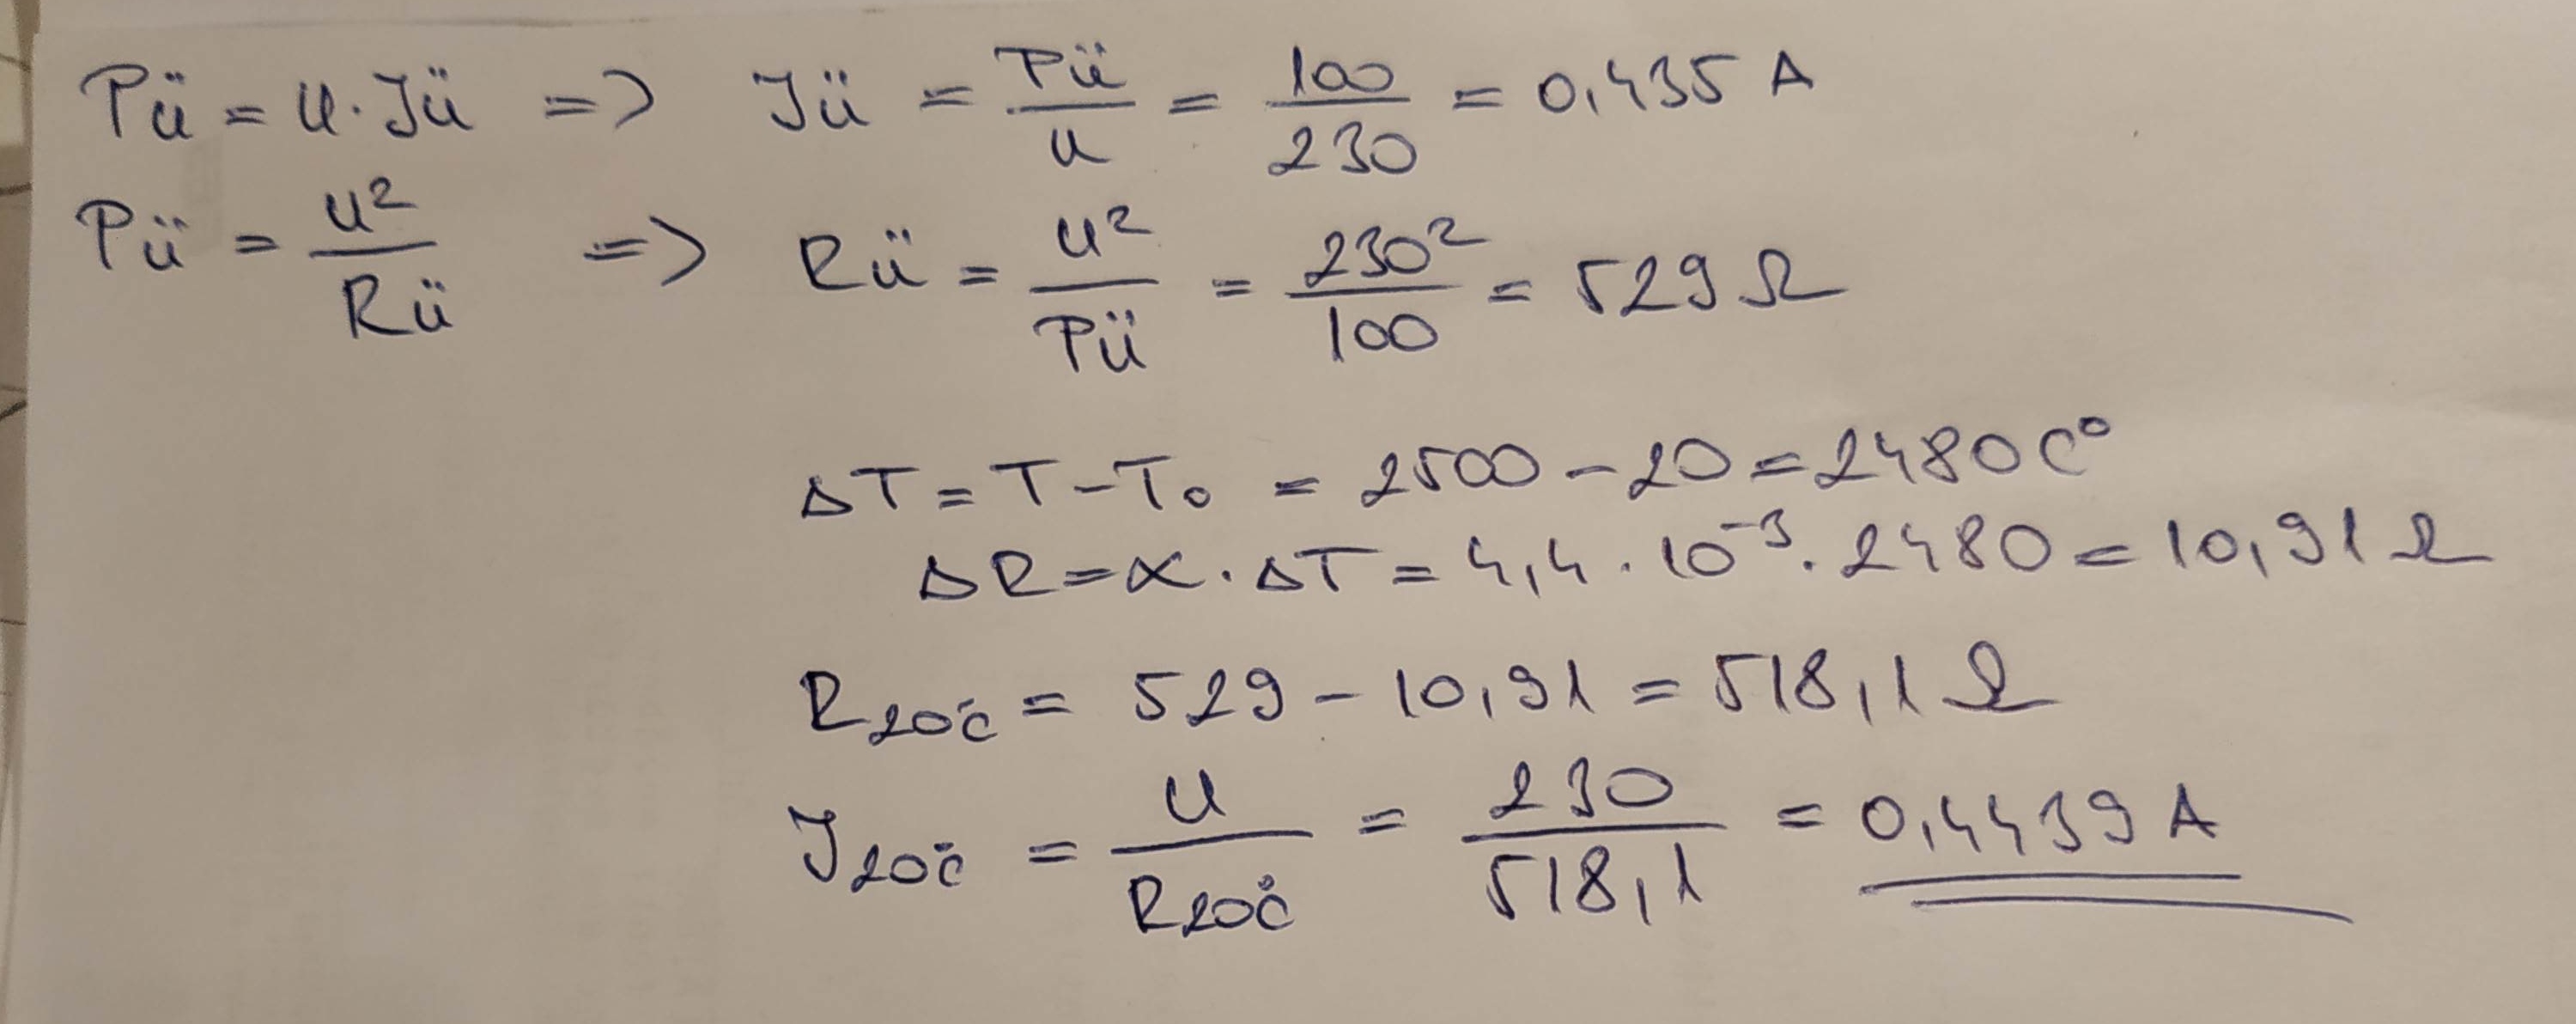 Pü = U·Jü => Jü = Pü/U = 100/230 = 0,435 A
Pü = U²/Rü => Rü = U²/Pü = 230²/100 = 529 Ω
ΔT = T - T₀ = 2500 - 20 = 2480 C°
ΔR = α · ΔT = 4,4 · 10⁻³ · 2480 = 10,91 Ω
R₂₀°C = 529 - 10,91 = 518,1 Ω
J₂₀°C = U/R₂₀°C = 230/518,1 = 0,4439 A